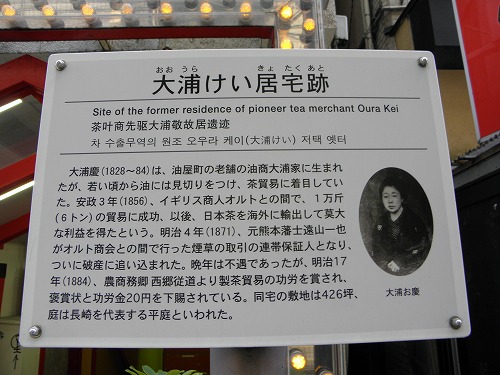 おおうら きょたくあと
大浦けい居宅跡
Site of the former residence of pioneer tea merchant Oura Kei
茶叶商先驱大浦敬故居遗迹
차 수출무역의 원조 오우라 케이(大浦けい) 저택 옛터
大浦慶(1828～84)は、油屋町の老舗の油商大浦家に生まれ
たが、若い頃から油には見切りをつけ、茶貿易に着目してい
た。安政3年(1856)、イギリス商人オルトとの間で、1万斤
(6トン)の貿易に成功、以後、日本茶を海外に輸出して莫大
な利益を得たという。明治4年(1871)、元熊本藩士遠山一也
がオルト商会との間で行った煙草の取引の連帯保証人となり、
ついに破産に追い込まれた。晩年は不遇であったが、明治17
年(1884)、農商務卿 西郷従道より製茶貿易の功労を賞され、
褒賞状と功労金20円を下賜されている。同宅の敷地は426坪、
庭は長崎を代表する平庭といわれた。
大浦お慶